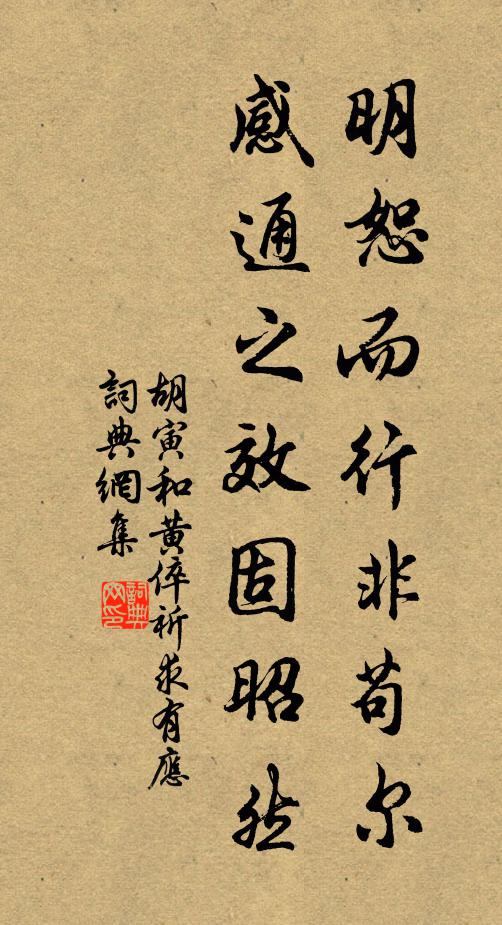 明恕而行非苟尔
感通之效固昭然
胡寅和黄倅祈求有應
詞典網集
詞典網印